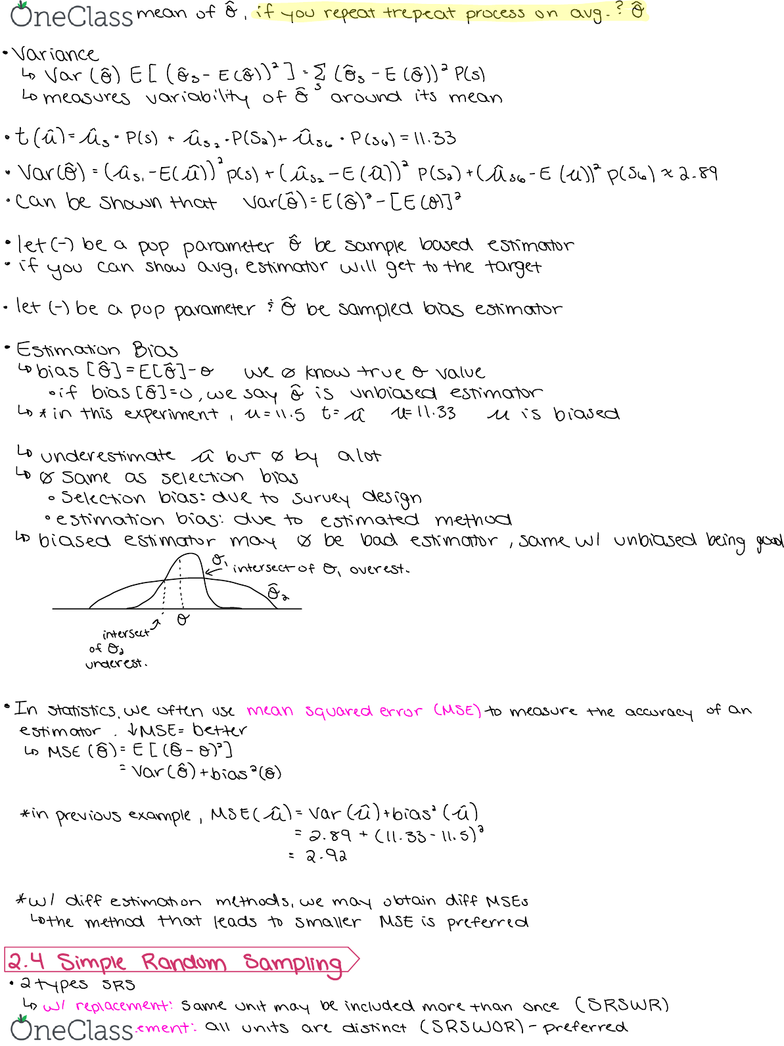 OneClass mean of θ̂, if you repeat trepeat process on avg.? θ̂
• Variance
↳ Var (θ̂) E[(θ̂s - E(θ̂))²] = Σ (θ̂s - E(θ̂))² P(s)
s
↳ measures variability of θ̂ around its mean
• t(û) = ûs₁ • P(s) + ûs₂ • P(S₂) + ûs₆ • P(s₆) = 11.33
• Var(θ̂) = (ûs₁ - E(û))² p(s) + (ûs₂ - E(û))² P(s₂) + (ûs₆ - E(u))² p(s₆) ≈ 2.89
• can be shown that Var(θ̂) = E(θ̂)² - [E(θ)]²
• let (-) be a pop parameter θ̂ be sample based estimator
• if you can show avg, estimator will get to the target
• let (-) be a pop parameter & θ̂ be sampled bias estimator
• Estimation Bias
↳ bias [θ̂] = E[θ̂] - θ we ∅ know true θ value
• if bias [θ̂] = 0, we say θ̂ is unbiased estimator
↳ * in this experiment, u = 11.5 t = û u = 11.33 u is biased
↳ underestimate û but ∅ by alot
↳ ∅ same as selection bias
• selection bias: due to survey design
• estimation bias: due to estimated method
↳ biased estimator may ∅ be bad estimator, same w/ unbiased being good
θ̂₁
intersect of θ₁ overest.
θ̂₂
θ
intersect
of θ₂
underest.
• In statistics, we often use mean squared error (MSE) to measure the accuracy of an
estimator. ↓MSE = better
↳ MSE (θ̂) = E[(θ̂ - θ)²]
= Var(θ̂) + bias²(θ̂)
* in previous example, MSE(û) = Var(û) + bias²(û)
= 2.89 + (11.33 - 11.5)²
= 2.92
* w/ diff estimation methods, we may obtain diff MSEs
↳ the method that leads to smaller MSE is preferred
2.4 Simple Random Sampling
• 2 types SRS
↳ w/ replacement: same unit may be included more than once (SRSWR)
OneClass ement: all units are distinct (SRSWOR) - preferred